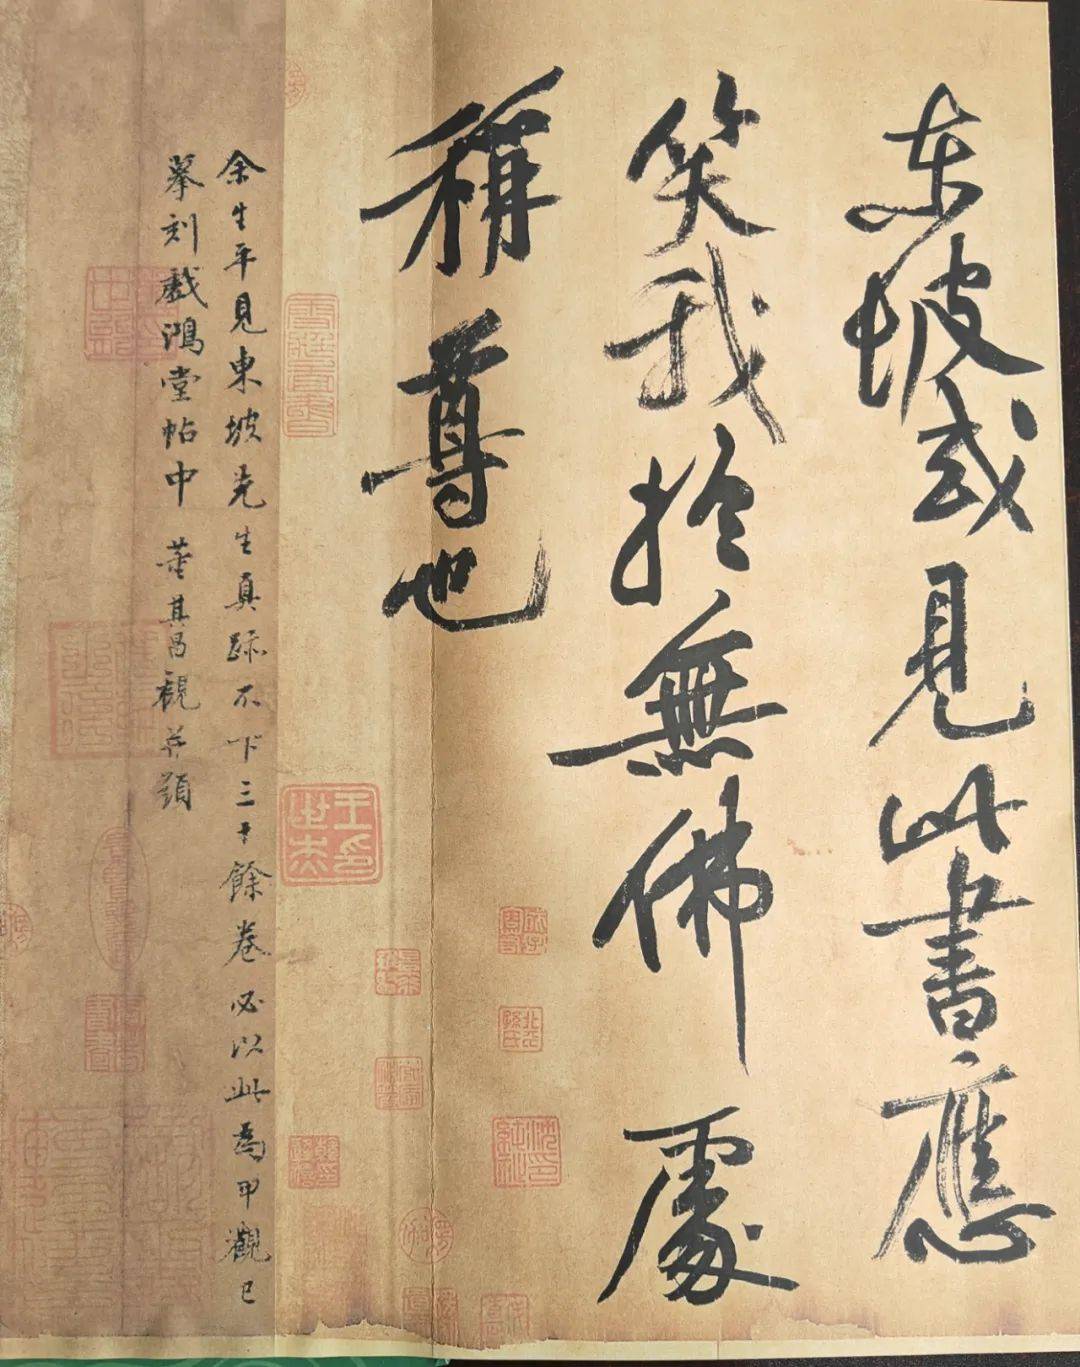 东坡或見此書應
笑我於無佛處
稱尊也
余生平見東坡先生真跡不下三十餘卷必以此為甲觀已
摹刻戲鴻堂帖中 董其昌觀并題